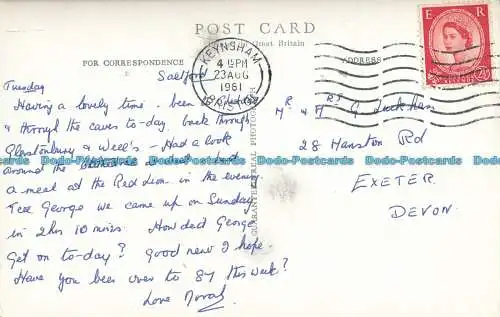 POST CARD
Great Britain
FOR CORRESPONDENCE
ADDRESS
KEYNSHAM
4 15 PM
23 AUG
1961
BRISTOL
E R
Saltford
Tuesday
Having a lovely time, been to
& through the caves to-day, back through
Glastonbury & Well's – Had a look
around the
a meal at the Red Lion in the evening.
Tell George we came up on Sunday
in 2 hrs 10 mins. How did George
Get on to-day? Good news I hope.
Have you been over to 87 this week?
Love Norah
Mr & Mrs G.
28 Manston Rd
EXETER
DEVON.
Dodo-Postcards Dodo-Postcards Dodo-Postcards Dodo-Postcards